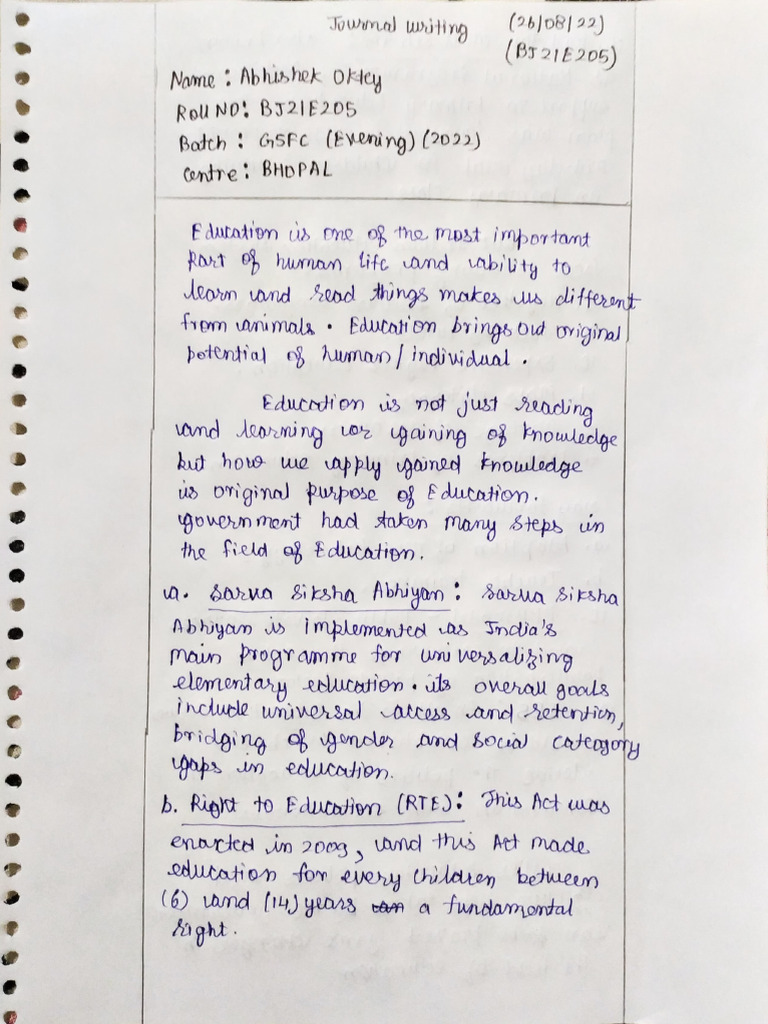 Journal Writing (26/08/22)
(BJ21E205)
Name: Abhishek Oktey
Roll NO: BJ21E205
Batch: GSFC (Evening) (2022)
Centre: BHOPAL
Education is one of the most important
part of human life and ability to
learn and read things makes us different
from animals. Education brings out original
potential of human/individual.
Education is not just reading
and learning or gaining of knowledge
but how we apply gained knowledge
is original purpose of Education.
government had taken many steps in
the field of Education.
a. Sarva Siksha Abhiyan: Sarva Siksha
Abhiyan is implemented as India's
main programme for universalizing
elementary education. its overall goals
include universal access and retention,
bridging of gender and social category
gaps in education.
b. Right to Education (RTE): This Act was
enacted in 2009, and this Act made
education for every children between
(6) and (14) years a fundamental
right.